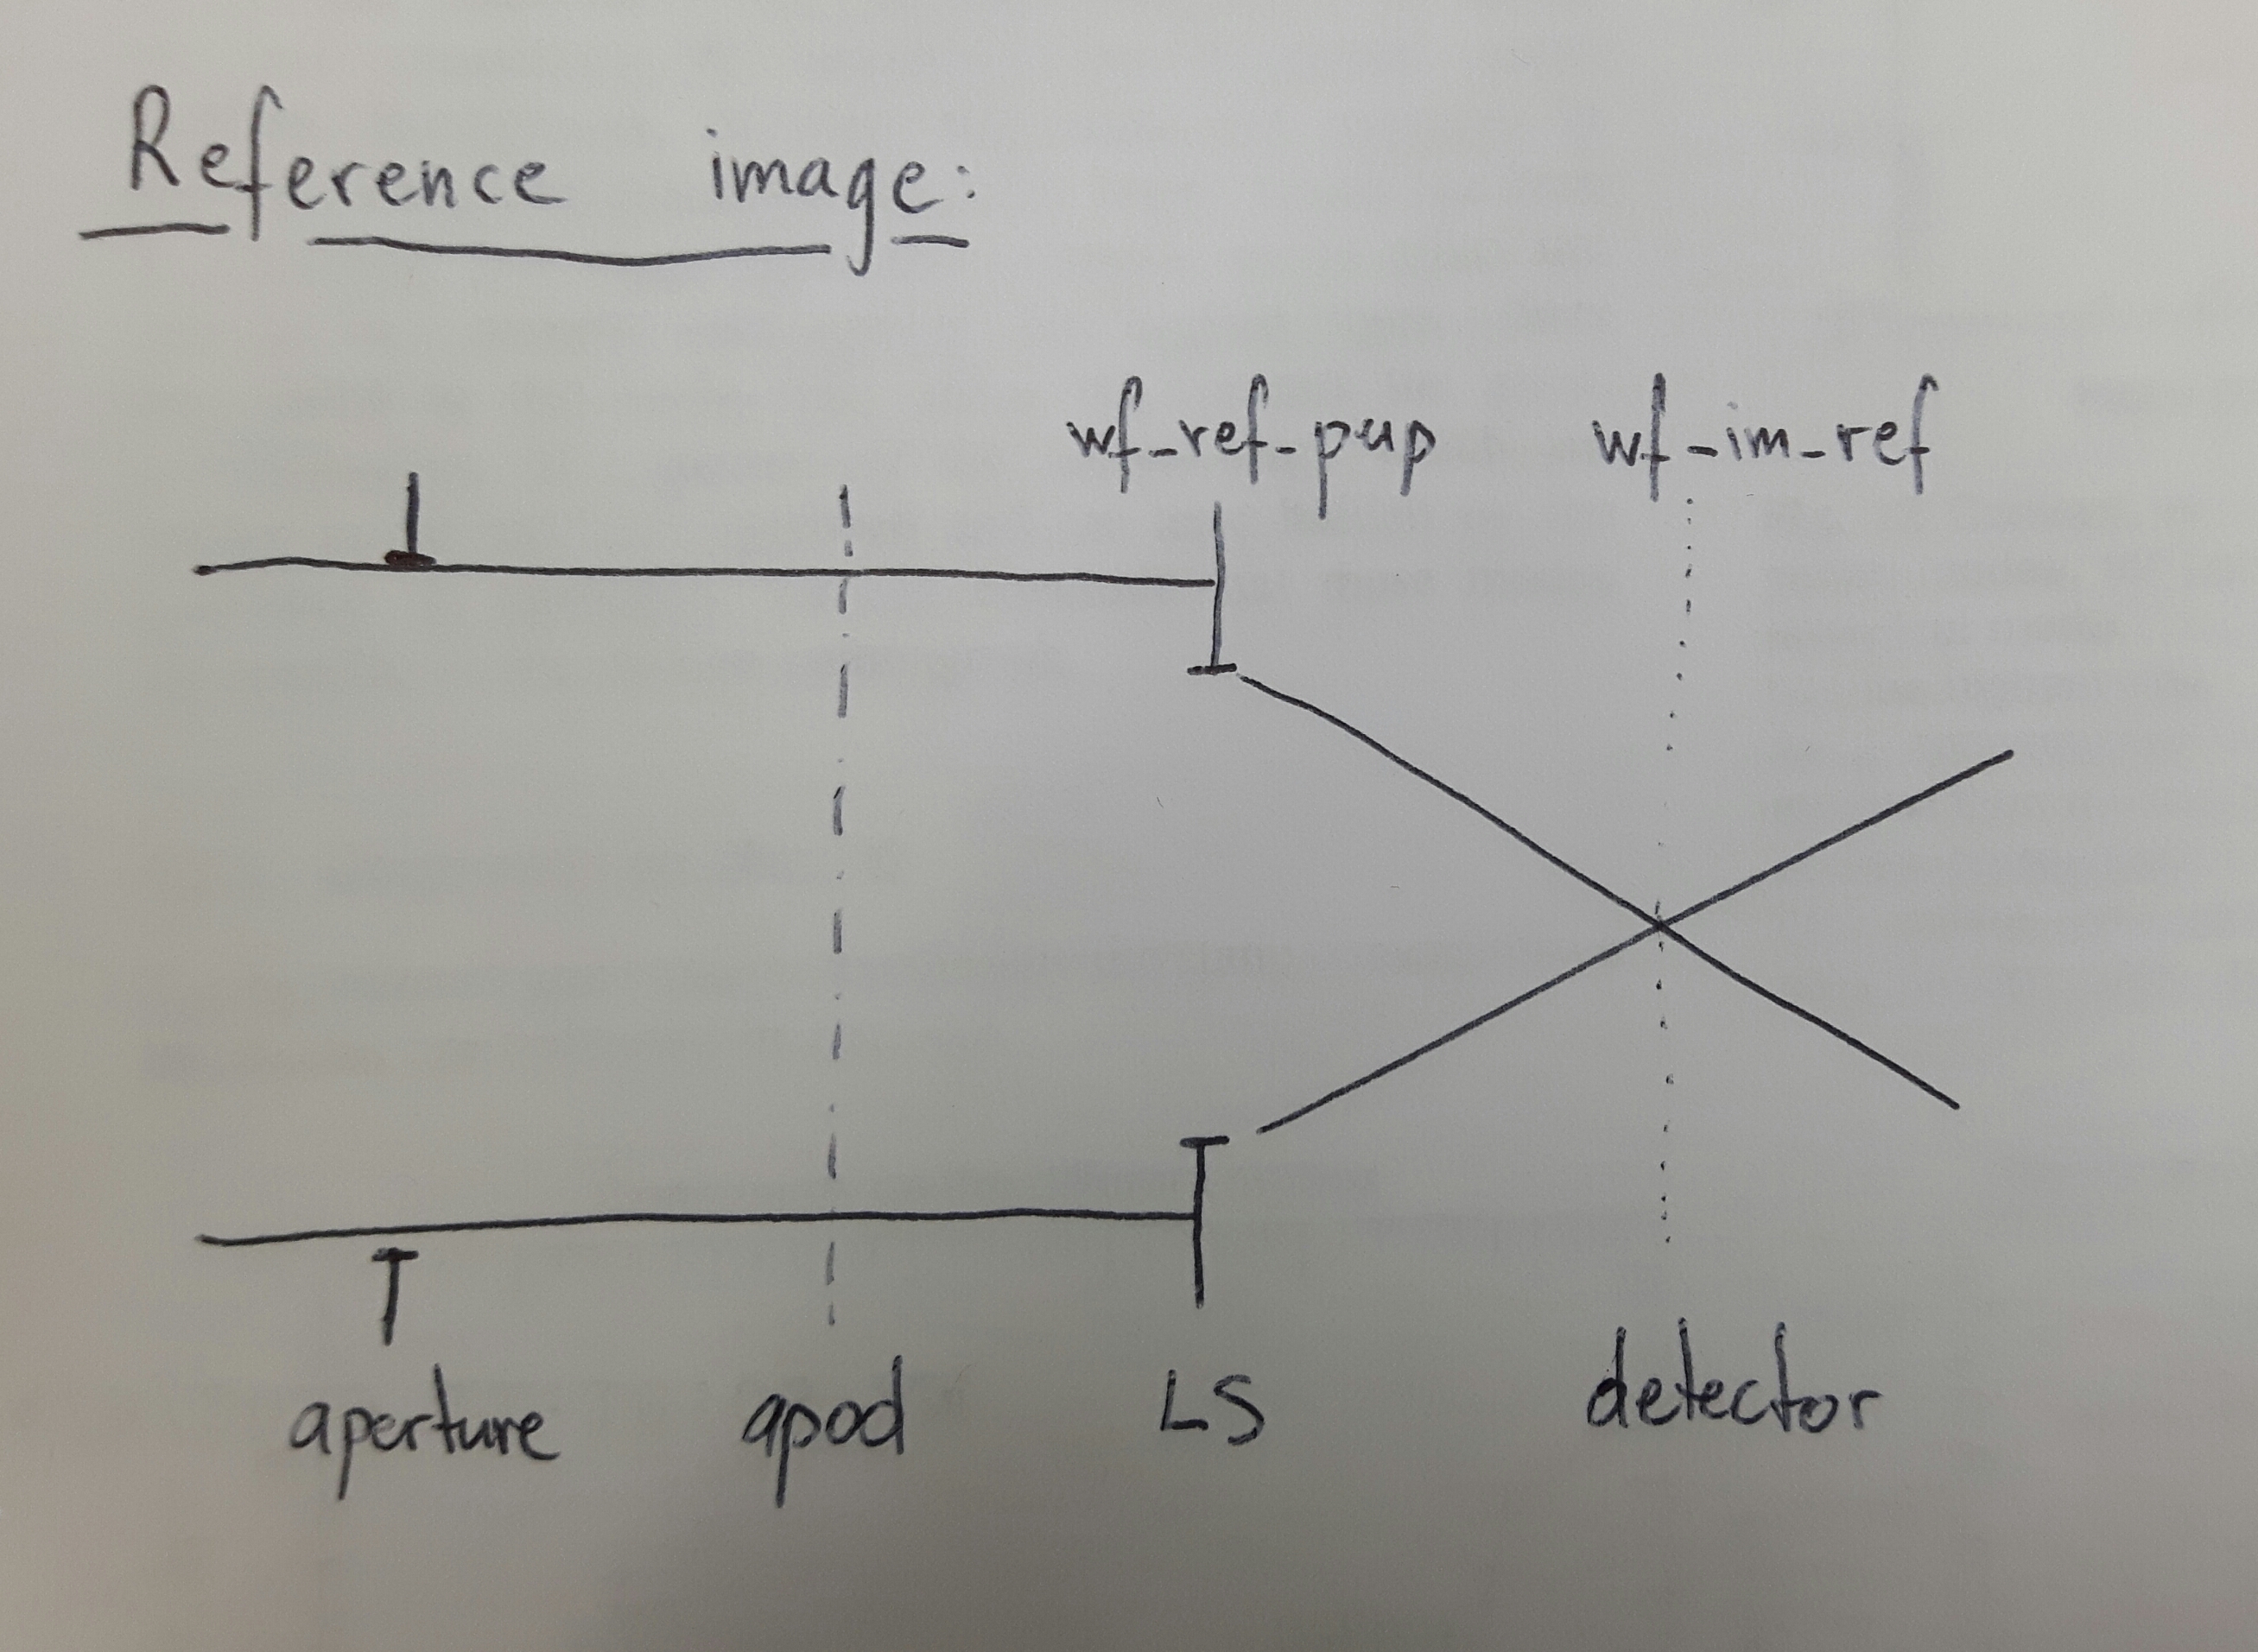 Reference image:
wf_ref_pup wf_im_ref
aperture apod LS detector